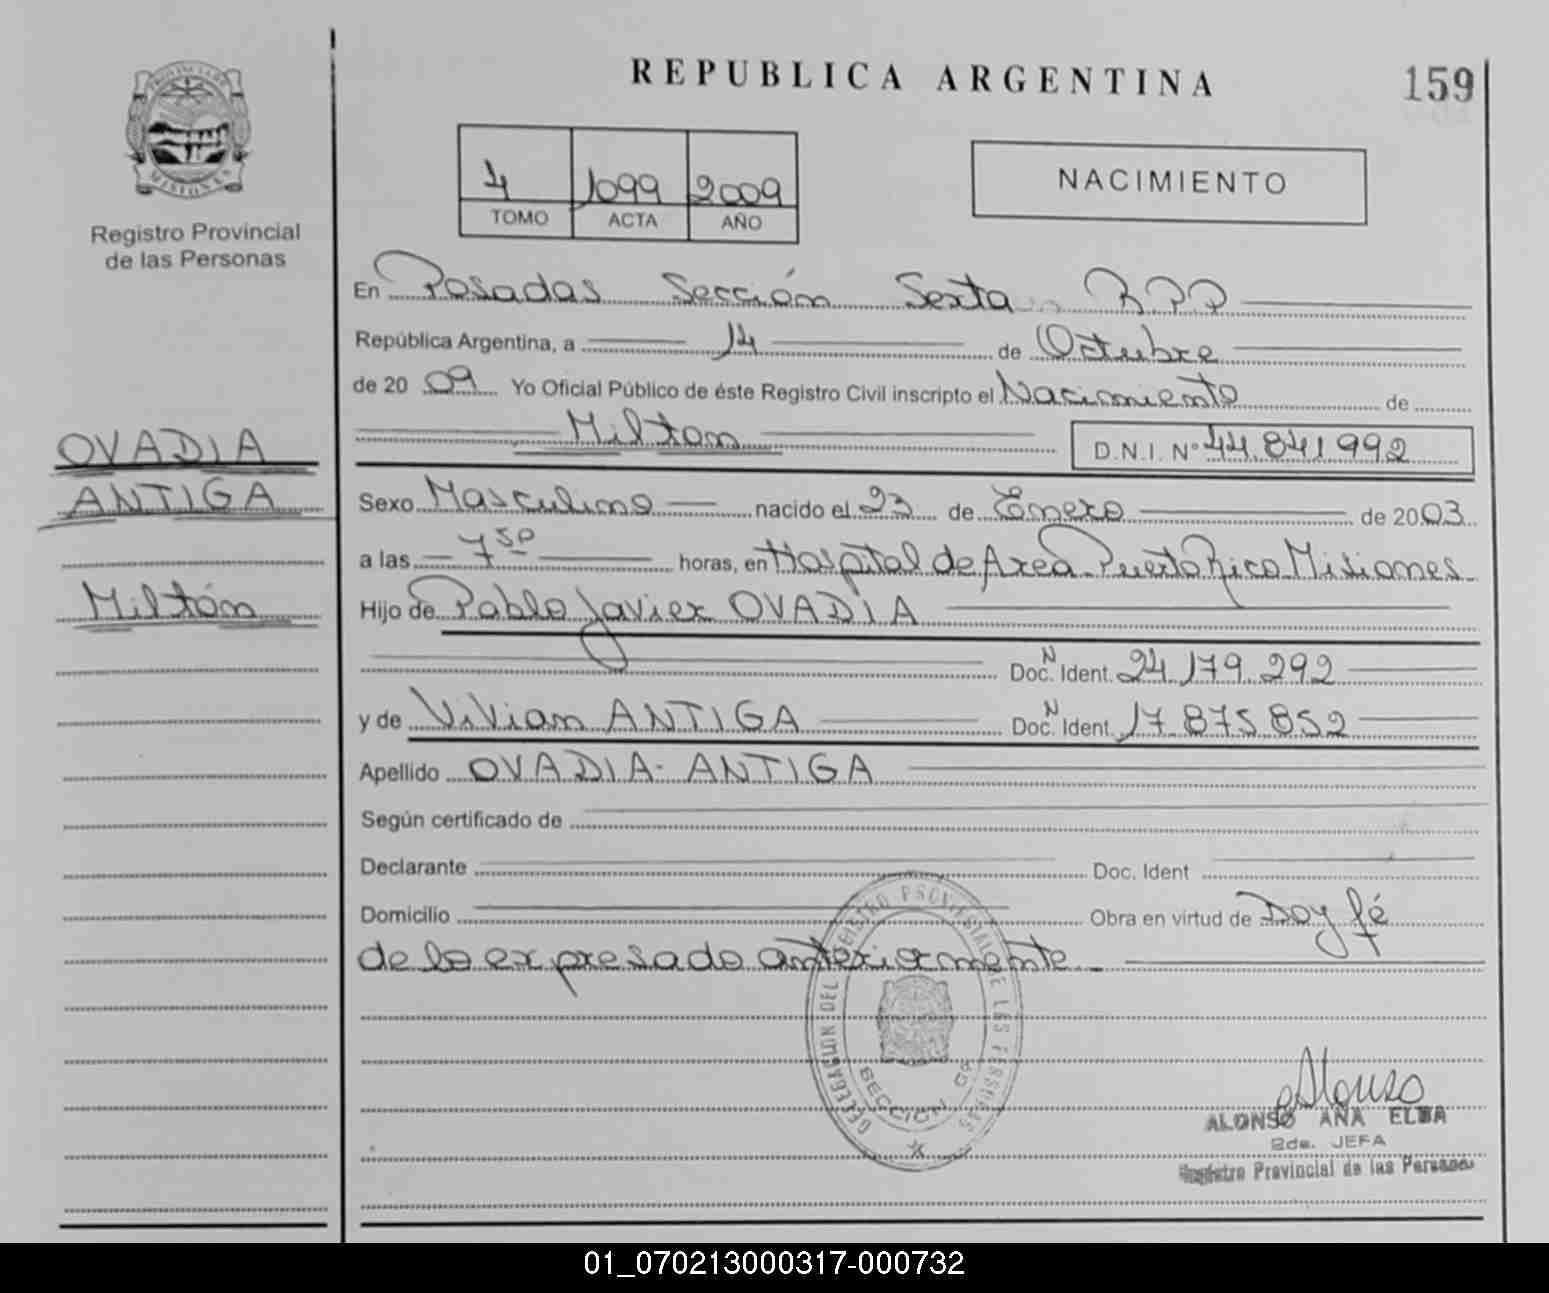 REPUBLICA ARGENTINA
159
PROVINCIA DE
MISIONES
Registro Provincial
de las Personas
4 1099 2009
TOMO ACTA AÑO
NACIMIENTO
En Posadas Sección Sexta RPP
República Argentina, a 14 de Octubre
de 2009 Yo Oficial Público de éste Registro Civil inscripto el Nacimiento de
Milton D.N.I. N° 44.841.992
OVADIA
ANTIGA
Miltón
Sexo Masculino nacido el 23 de Enero de 2003
a las 7 50 horas, en Hospital de Area Puerto Rico Misiones
Hijo de Pablo Javier OVADIA
Doc. N Ident. 24.179.292
y de Vivian ANTIGA Doc. N Ident. 17.875.852
Apellido OVADIA - ANTIGA
Según certificado de
Declarante Doc. Ident
Domicilio Obra en virtud de Doy fé
de lo expresado anteriormente
DELEGACION DEL REGISTRO PROVINCIAL DE LAS PERSONAS
SECCION 6a
Alonso
ALONSO ANA ELBA
2da. JEFA
Registro Provincial de las Personas
01_070213000317-000732